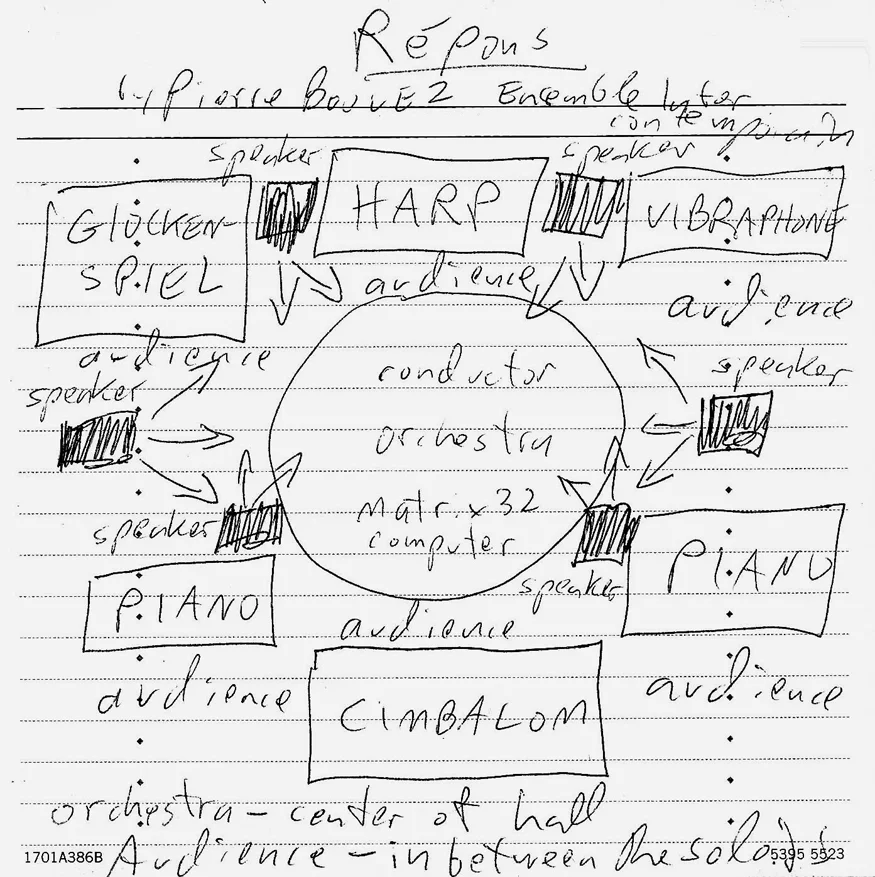 Répons
by Pierre BOULEZ Ensemble Inter
contemporain
speaker
speaker
GLOCKEN-
SPIEL
HARP
VIBRAPHONE
audience
audience
audience
speaker
speaker
conductor
orchestra
matrix 32
computer
speaker
speaker
PIANO
PIANO
audience
audience
audience
CIMBALOM
orchestra – center of hall
Audience – in between the soloists
1701A386B
5395 5523